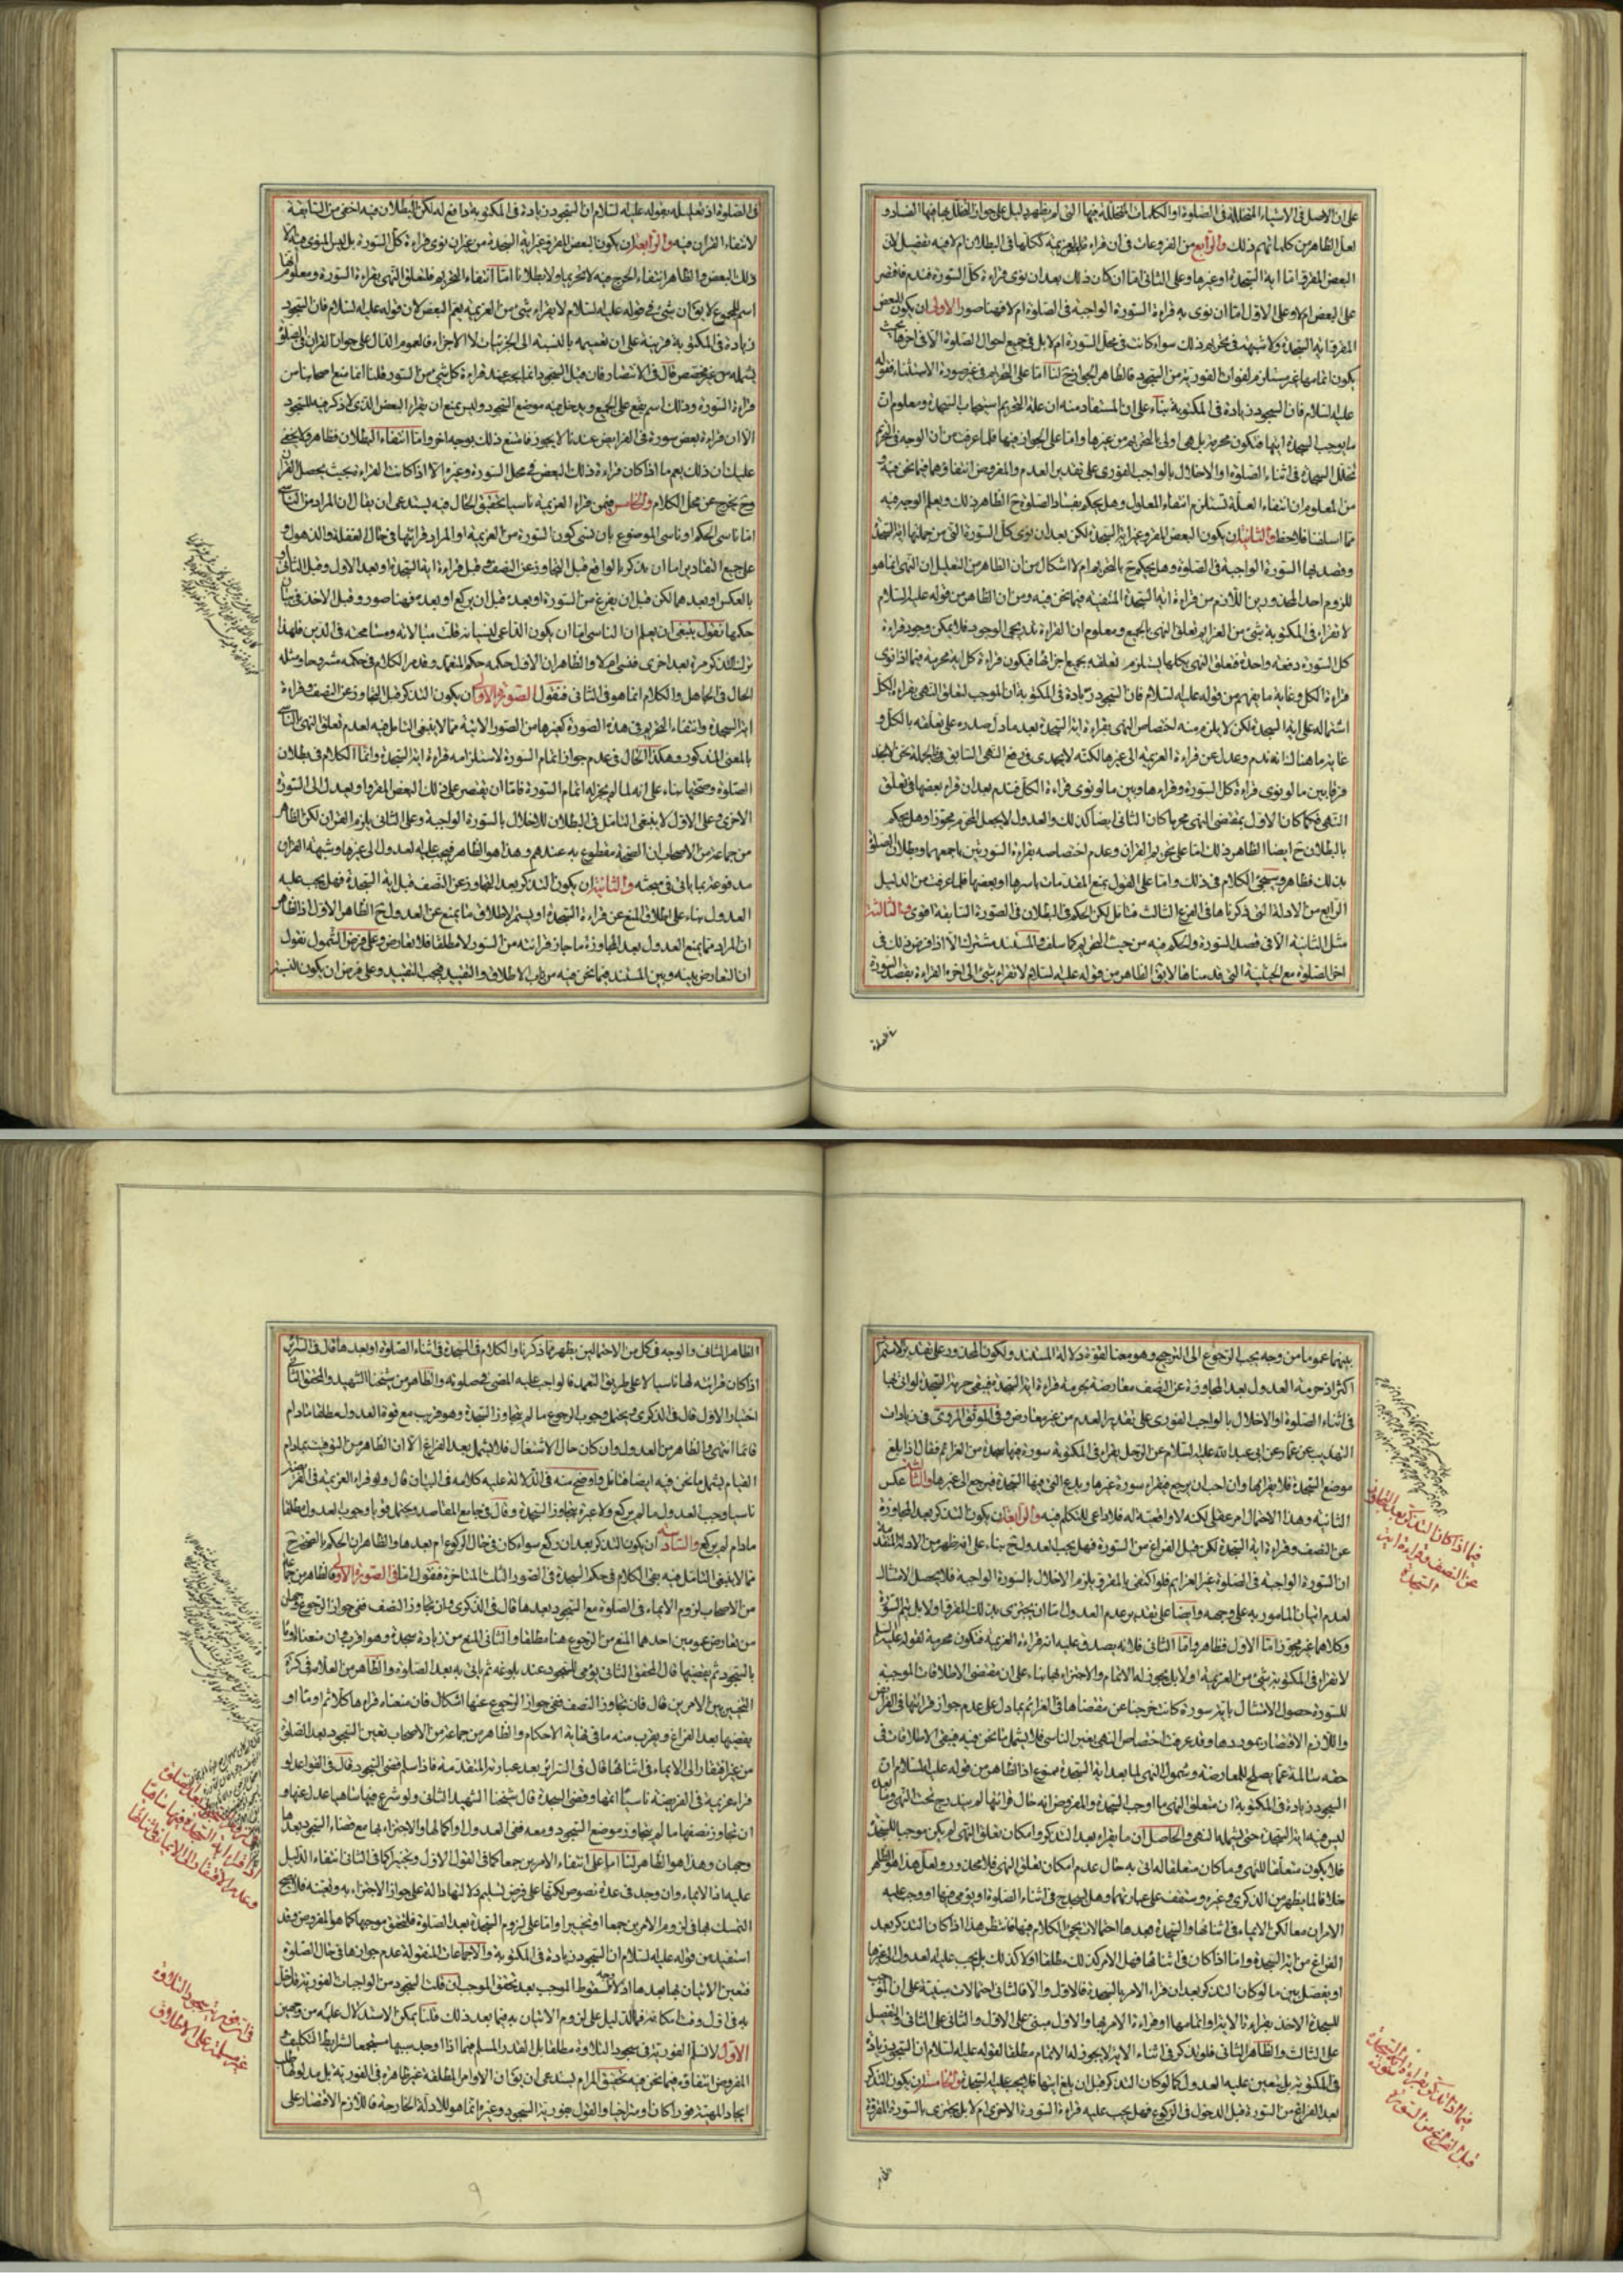 على ان الاصل فى الاشياء المتخللة فى الصلوة او الكلمات المتخللة فيها التى لم يظهر دليل على جواز تخلل
لعل الظاهر من كلماتهم ذلك والرابع من الفروعات فى ان قراءة
البعض المفرو اما اية السجدة او غيرها وعلى الثانى اما ان كان ذلك بعد ان نوى قراءة كل السورة فندم فاقتصر
على البعض ام لا وعلى الاول اما ان نوى به قراءة السورة الواجبة فى الصلوة ام لا فهنا صور الاولى ان يكون البعض
المفرو اية السجدة ولا شبهة فى تحريم ذلك سواء كانت فى محل السورة ام لا بل فى جميع احوال الصلوة الا فى اخرها
عليه السلام فان السجود زيادة فى المكتوبة بناء على ان المستفاد منه ان علة التحريم استحباب السجدة ومعلوم ان
من المعلوم ان انتفاء العلة تستلزم انتفاء المعلول وهل يحكم بفساد الصلوة ح الظاهر ذلك ويعلم الوجه فيه
مما اسلفنا فلاحظ والثانية ان يكون البعض المفرو غير اية السجدة لكن بعد ان نوى كل السورة التى من جملتها اية السجدة
وقصد بها السورة الواجبة فى الصلوة وهل يحكم ح بالتحريم ام لا اشكال من ان الظاهر من التعليل ان النهى انما هو
للزوم احد المحذورين اللازم من قراءة اية السجدة المنتفية فيما نحن فيه ومن ان الظاهر من قوله عليه السلام
لا تقرء فى المكتوبة بشئ من العزائم تعلق النهى بالجميع ومعلوم ان القراءة تدريجى الوجود فلا يمكن وجود قراءة
كل السورة دفعة واحدة فتعلق النهى بكلها يستلزم تعلقه بجميع اجزائها فيكون قراءة كل اية محرمة فيما اذا نوى
قراءة الكل وغاية ما يفهم من قوله عليه السلام فان السجود زيادة فى المكتوبة ان الموجب لتعلق النهى بقراءة الكل
اشتماله على اية السجدة لكن لا يلزم منه اختصاص النهى بقراءة اية السجدة بعد ما دل صدره على تعلقه بالكل و
فرقا بين ما لو نوى قراءة كل السورة وقراءها وبين ما لو نوى قراءة الكل فندم بعد ان قراء بعضها فى تعلق
النهى فكما كان الاول بمقتضى النهى محرما كان الثانى ايضا كذلك والعدول لا يجعل المحرم مجوزا وهل يحكم
بالبطلان ح ايضا الظاهر ذلك اما على تحريم القران وعدم اختصاصه بقراءة السورتين باجمعهما وبطلان الصلوة
بذلك فظاهر وسيجئ الكلام فى ذلك واما على القول بمنع المقدمات باسرها او بعضها فلما عرفت من الدليل
الرابع من الادلة التى ذكرناها فى الفرع الثالث فتامل لكن الحكم فى البطلان فى الصورة السابقة اقوى والثالثة
مثل الثانية الا فى قصد السورة والحكم فيه من حيث التحريم كما سلف والمستند مشترك الا اذا فرض ذلك فى
اخر الصلوة مع الحيثية التى قدمناها لا يق الظاهر من قوله عليه السلام لا تقراء بشئ الى اخره القراءة بقصد السورة
فى الصلوة
فى الصلوة اذ تعليله بقوله عليه السلام ان السجود زيادة فى المكتوبة دافع له لكن البطلان فيه اخفى من السابقة
لانتفاء القران فيه والرابعة ان يكون البعض المفرو غير اية السجدة من غير ان نوى قراءة كل السورة بل ليس المنوى فيه الا
ذلك البعض والظاهر انتفاء الحرج فيه لا تحريما ولا بطلانا اما انتفاء التحريم فلتعلق النهى بقراءة السورة ومعلوم انها
اسم للمجموع لا يق ان شئ فى قوله عليه السلام لا تقراء بشئ من العزيمة يعم البعض لان قوله عليه السلام فان السجود
زيادة فى المكتوبة قرينة على ان تعميمه بالنسبة الى الجزئيات لا الاجزاء فالعموم الدال على جواز القران فى الصلوة
يشمله من غير مخصص قال فى الانتصار فان قيل السجود انما يجب عند قراءة كل شئ من السور قلنا انما منع اصحابنا من
قراءة السورة وذلك اسم يقع على الجميع ويدخل فيه موضع السجود وليس يمنع ان يقراء البعض الذى لا ذكر فيه للسجود
الا ان قراءة بعض سورة فى الفرايض عندنا لا يجوز فامتنع ذلك بوجه اخر واما انتفاء البطلان فظاهر ولا يخفى
عليك ان ذلك يعم ما اذا كان قراءة ذلك البعض فى محل السورة وغيره الا اذا كانت القراءة بحيث يحصل القران
وح يخرج عن محل الكلام والخامس فيمن قراء العزيمة ناسيا تحقيق الحال فيه يستدعى ان يقال ان المراد من الناسى
اما ناسى الحكم او ناسى الموضوع بان نسى كون السورة من العزيمة او المراد قرائتها فى حال الغفلة والذهول و
على جميع التقادير اما ان يتذكر بالواقع قبل التجاوز عن النصف وقبل قراءة اية السجدة او بعد الاول وقبل الثانى او
بالعكس او بعدهما لكن قبل ان يفرغ من السورة او بعده قبل ان يركع او بعده فهنا صور وقبل الاخذ فى بيان
حكمها نقول ينبغى ان يعلم ان الناسى اما ان يكون الداعى لنسيانه قلت مبالاته ومسامحته فى الدين فلهذا
ترك التذكر مرة بعد اخرى فنسى ام لا والظاهر ان الاول حكمه حكم المتعمد وقد مر الكلام فى حكمه مشروحا ومثله
الحال فى الجاهل والكلام انما هو فى الثانى فنقول الصورة الاولى ان يكون التذكر قبل التجاوز عن النصف وقراءة
اية السجدة وانتفاء التحريم فى هذه الصورة كغيرها من الصور الاتية مما لا ينبغى التامل فيه لعدم تعلق النهى بالناسى
بالمعنى المذكور وهكذا الحال فى عدم جواز اتمام السورة لاستلزامه قراءة اية السجدة وانما الكلام فى بطلان
الصلوة وصحتها بناء على انه لما لم يجز له اتمام السورة فاما ان يقتصر على ذلك البعض المفرو او يعدل الى السورة
الاخرى وعلى الاول لا ينبغى التامل فى البطلان للاخلال بالسورة الواجبة وعلى الثانى يلزم القران لكن الظاهر
من جماعة من الاصحاب ان الصحة مقطوع به عندهم وهذا هو الظاهر فيجب عليه العدول الى غيرها وشبهة القران
مدفوعة بما ياتى فى مبحثه والثانية ان يكون التذكر بعد التجاوز عن النصف قبل اية السجدة فهل يجب عليه
العدول بناء على اطلاق المنع عن قراءة السجدة او يستمر لاطلاق ما يمنع عن العدول ح الظاهر الاول اذ الظاهر
ان المراد مما يمنع العدول بعد المجاوزة ما جاز قرائته من السور لا مطلقا فلا تعارض وعلى فرض الشمول نقول
ان التعارض بينه وبين المستند فيما نحن فيه من باب الاطلاق والتقييد فيجب التقييد وعلى فرض ان يكون النسبة
بينهما عموما من وجه يجب الرجوع الى الترجيح وهو معنا لقوة دلالة المستند ولكون المحذور على تقدير الاستمرار
اكثر اذ حرمة العدول بعد المجاوزة عن النصف معارضة بحرمة قراءة اية السجدة فيبقى حرمة السجدة لو اتى بها
فى اثناء الصلوة او الاخلال بالواجب الفورى على تقدير العدم من غير معارض وفى الموثق المروى فى زيادات
التهذيب عن عمار عن ابى عبد الله عليه السلام عن الرجل يقراء فى المكتوبة سورة فيها سجدة من العزائم فقال اذا بلغ
موضع السجدة فلا يقراها وان احب ان يرجع فيقراء سورة غيرها ويدع التى فيها السجدة فيرجع الى غيرها والثالثة عكس
الثانية وهذا الاحتمال امر عقلى لكنه لا واقعية له فلا داعى للتكلم فيه والرابعة ان يكون التذكر بعد المجاوزة
عن النصف وقراءة اية السجدة لكن قبل الفراغ من السورة فهل يجب العدول ح بناء على انه ظهر من الادلة المتقدمة
ان السورة الواجبة فى الصلوة غير العزايم فلو اكتفى بالمفرو يلزم الاخلال بالسورة الواجبة فلا يحصل الامتثال
لعدم اتيان المامور به على وجهه وايضا على تقدير عدم العدول اما ان يجتزى بذلك المفرو اولا بل يتم السورة
وكلاهما غير مجوز اما الاول فظاهر واما الثانى فلانه يصدق عليه انه قراءة العزيمة فتكون محرمة لقوله عليه السلام
لا تقراء فى المكتوبة بشئ من العزيمة او لا بل يجوز له الاتمام والاجتزاء بها بناء على ان مقتضى الاطلاقات الموجبة
للسورة حصول الامتثال باية سورة كانت خرجنا عن مقتضاها فى العزائم بما دل على عدم جواز قرائتها فى الفرائض
واللازم الاقتصار بموردها وقد عرفت اختصاص النهى بغير الناسى فلا يشمل ما نحن فيه فيبقى الاطلاقات فى
حقه سالمة عما يصلح للمعارضة وشمول النهى لما بعد اية السجدة ممنوع اذ الظاهر من قوله عليه السلام ان
السجود زيادة فى المكتوبة ان متعلق النهى ما اوجب السجدة والمفروض انه حال قرائتها لم يندرج تحت النهى وما بعده
ليس فيه اية السجدة حتى يشمله النهى والحاصل ان ما يقراء بعد التذكر وامكان تعلق النهى لم يكن موجبا للسجدة
فلا يكون متعلقا للنهى وما كان متعلقا له اتى به حال عدم امكان تعلق النهى فلا محذور ولعل هذا هو الظاهر
خلافا لما يظهر من الذكرى وغيره وستقف على عباراتهما وهل يسجد ح فى اثناء الصلوة او يؤمى فيها او وجب عليه
الامران معا لكن الايماء فى اثنائها والسجدة بعدها احتمالات يجئ الكلام فيها فانتظر هذا اذا كان التذكر بعد
الفراغ من اية السجدة واما اذا كان فى اثنائها فهل الامر كذلك مطلقا او لا كذلك بل يجب عليه العدول الى غيرها
او يفصل بين ما لو كان التذكر بعد ان قراء الامر بالسجدة فالاول والا فالثانى احتمالات مبنية على ان الموجب
للسجدة الاخذ بقراءة الاية او اتمامها او قراءة الامر بها والاول مبنى على الاول والثانى على الثانى والتفصيل
على الثالث والظاهر الثانى فلو تذكر فى اثناء الاية لا يجوز له الاتمام مطلقا لقوله عليه السلام ان السجود زيادة
فى المكتوبة بل يتعين عليه العدول كما لو كان التذكر قبل ان بلغ اليها فلا يجب عليه السجدة والخامسة ان يكون التذكر
بعد الفراغ من السورة قبل الدخول فى الركوع فهل يجب عليه قراءة السورة الاخرى ام لا بل يجتزى بالسورة المفروة
فيما اذا كان التذكر بعد التجاوز
عن النصف وقراءة اية
السجدة
فيما اذا تذكر بقراءة اية السجدة
قبل الفراغ من السورة
الظاهر الثانى والوجه فى كل من الاحتمالين يظهر مما ذكرنا والكلام فى السجدة فى اثناء الصلوة او بعدها قال فى السرائر
اذا كان قرائته لها ناسيا لا على طريق التعمد فالواجب عليه المضى فى صلوته والظاهر من شيخنا الشهيد والمحقق الثانى
اختيار الاول قال فى الذكرى ويحتمل وجوب الرجوع ما لم يتجاوز السجدة وهو قريب مع قوة العدول مطلقا ما دام
قائما انتهى والظاهر من العدول وان كان حال الاشتغال فلا يشمل بعد الفراغ الا ان الظاهر من التوقيت بما دام
القيام يشمل ما نحن فيه ايضا فتامل واوضح منه فى الدلالة عليه كلامه فى البيان قال ولو قراء العزيمة فى الفرائض
ناسيا وجب العدول ما لم يركع ولا عبرة بتجاوز السجدة وقال فى جامع المقاصد ويحتمل قويا وجوب العدول مطلقا
ما دام لم يركع والسادسة ان يكون التذكر بعد ان ركع سواء كان فى حال الركوع ام بعدها والظاهر ان الحكم بالصحة ح
مما لا ينبغى التامل فيه بقى الكلام فى حكم السجدة فى الصور الثلث المتاخرة فنقول اما فى الصورة الاولى فالظاهر من جماعة
من الاصحاب لزوم الايماء فى الصلوة مع السجود بعدها قال فى الذكرى وان تجاوز النصف ففى جواز الرجوع وجهان
من تعارض عمومين احدهما المنع من الرجوع هنا مطلقا والثانى المنع من زيادة سجدة وهو اقرب وان منعناه اومأ
بالسجود ثم يقضيها قال المحقق الثانى يؤمى للسجود عند بلوغه ثم ياتى به بعد الصلوة والظاهر من العلامة فى كرة
التخيير بين الامرين قال فان تجاوز النصف ففى جواز الرجوع عنها اشكال فان منعناه قراءها كملا ثم اومأ او
يقضيها بعد الفراغ ويقرب منه ما فى نهاية الاحكام والظاهر من جماعة من الاصحاب تعين السجود بعد الصلوة
من غير افتقار الى الايماء فى اثنائها قال فى السرائر بعد عبارته المتقدمة فاذا سلم قضى السجود قال فى القواعد لو
قراء عزيمة فى الفريضة ناسيا اتمها وقضى السجدة قال شيخنا الشهيد الثانى ولو شرع فيها ساهيا عدل عنها و
ان تجاوز نصفها ما لم يتجاوز موضع السجود ومعه ففى العدول او اكمالها والاجتزاء بها مع قضاء السجود بعدها
وجهان وهذا هو الظاهر لنا اما على انتفاء الامرين جمعا كما فى القول الاول وتخييرا كما فى الثانى انتفاء الدليل
عليه اذ الايماء وان وجد فى عدة نصوص لكنها على فرض تسليم دلالتها دالة على جواز الاجتزاء به وتعينه فلا يصح
التمسك بها فى لزوم الامرين جمعا او تخييرا واما على لزوم السجدة بعد الصلوة فلتحقق موجبها كما هو المفروض وقد
استفيد من قوله عليه السلام ان السجود زيادة فى المكتوبة والاجماعات المنقولة عدم جوازها فى حال الصلوة
فتعين الاتيان بها بعدها اذ لا وجه لسقوط الموجب بعد تحقق الموجب ان قلت السجود من الواجبات الفورية فاذا اخل
به فى اول وقت امكانه فما الدليل على لزوم الاتيان به فيما بعد ذلك قلنا يمكن الاستدلال عليه من وجهين
الاول لا نسلم الفورية فى سجود التلاوة مطلقا بل القدر المسلم فيما اذا وجد سببها مستجمعا لشرايط التكليف و
المفروض انتفائه فيما نحن فيه تحقيق المرام يستدعى ان يق ان الاوامر المطلقة غير ظاهرة فى الفورية بل مدلولها طلب
ايجاد المهية فورا كان او متراخيا والقول بفورية السجود وغيره انما هو للادلة الخارجة فاللازم الاقتصار على
اذا قراء اية السجدة فيها ساهيا
وعدم الافتقار الى الايماء فى اثنائها
فى ان فورية سجود التلاوة
غير مسلمة على الاطلاق